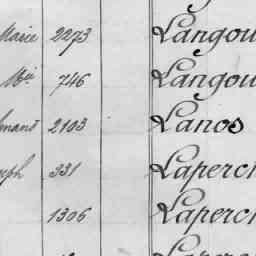 Marie 2273 Langou
Mie 746 Langou
mand 2103 Lanos
eph 331 Laperch
1306 Laperch